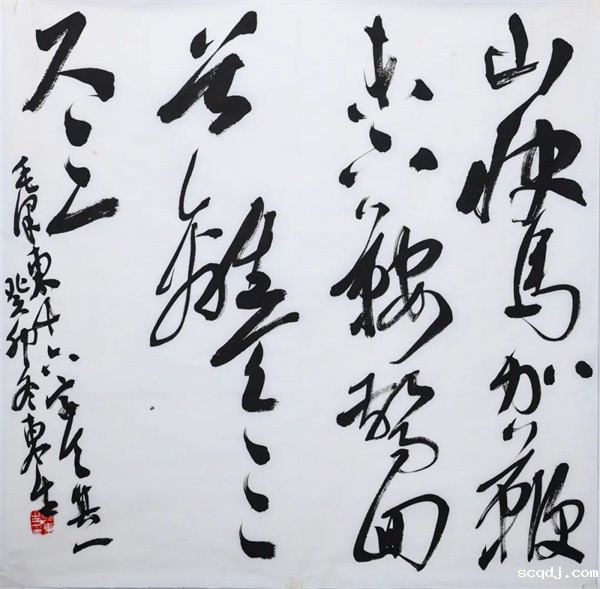 山快馬加鞭
未下鞍驚回
首離天三
尺三
毛澤東十六字令其一
癸卯冬
scqdj.com